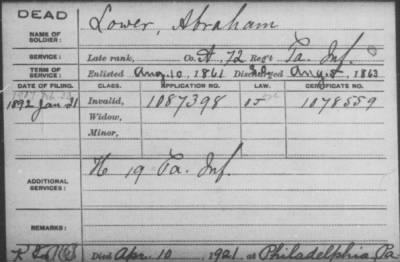 DEAD
NAME OF SOLDIER: Lower, Abraham
SERVICE: Late rank, Co. A, 72 Reg't Pa. Inf.
TERM OF SERVICE: Enlisted Aug. 10, 1861 Discharged Aug. 8, 1863
DATE OF FILING. CLASS. APPLICATION NO. LAW. CERTIFICATE NO.
1892 Jan. 21 Invalid, 1087398 1078559
Widow,
Minor,
ADDITIONAL SERVICES: H 19 Pa. Inf.
REMARKS:
Died Apr. 10, 1921, at Philadelphia, Pa.